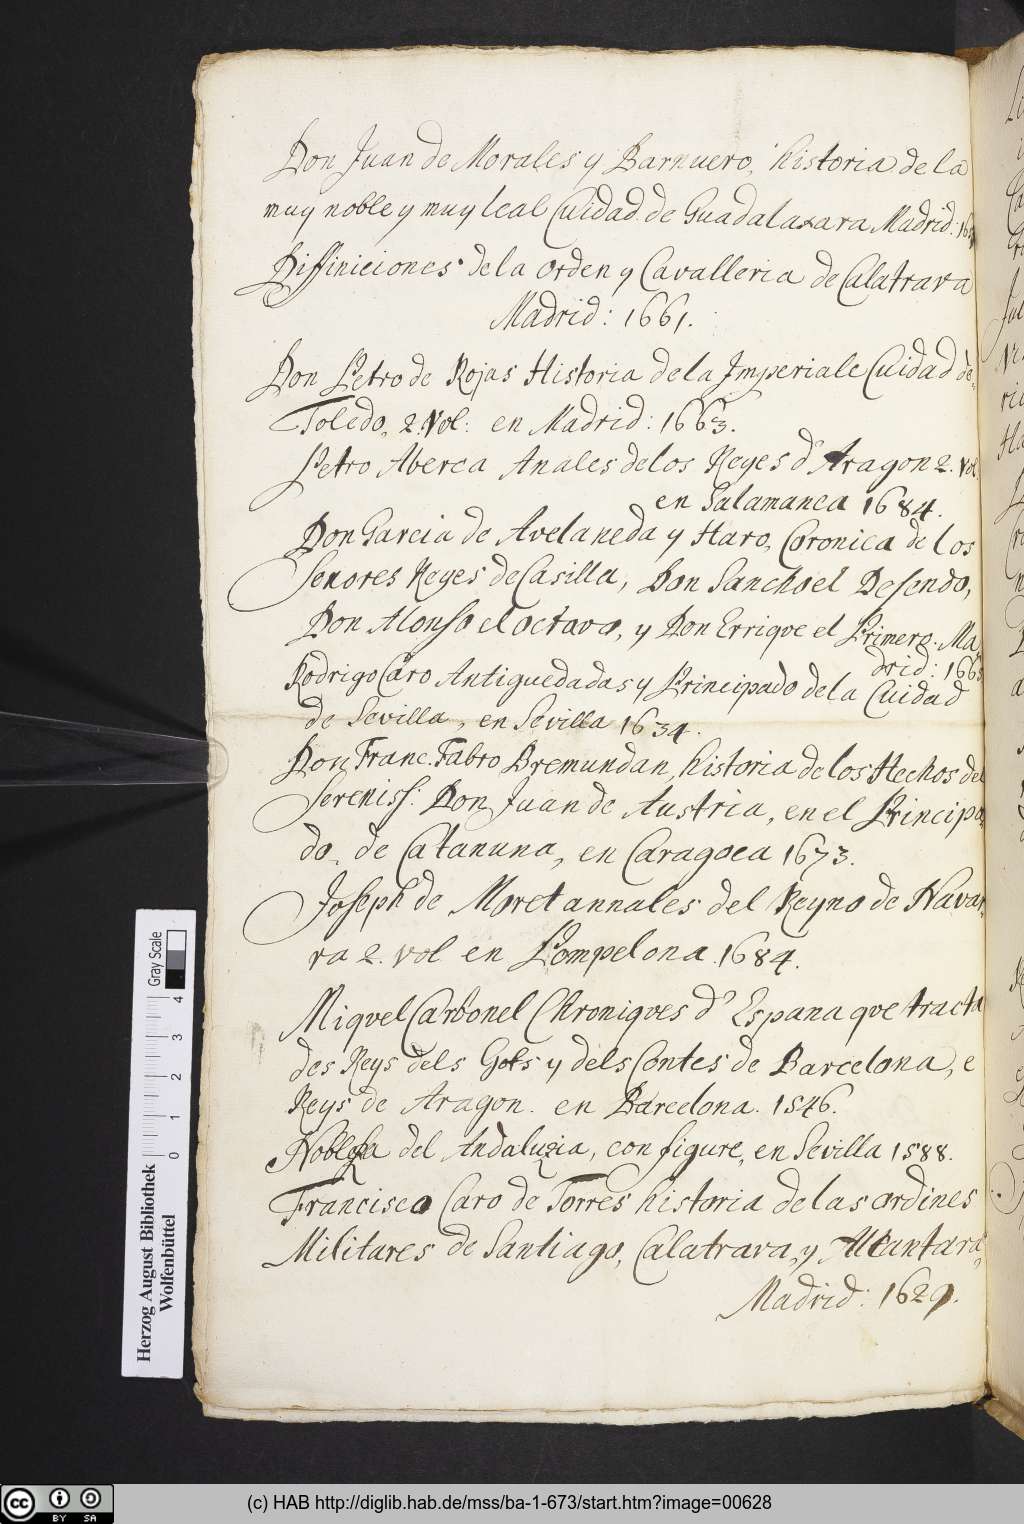 Don Juan de Morales y Barnuevo, historia de la
muy noble y muy leal Cuidad de Guadalaxara Madrid:
Diffiniciones de la orden y Cavalleria de Calatrava
Madrid: 1661.
Don Petro de Rojas Historia de la Imperiale Cuidad de
Toledo, 2. Vol: en Madrid: 1663.
Petro Aberca Anales de los Reyes d' Aragon 2. Vol
en Salamanca 1684.
Don Garcia de Avelaneda y Haro, Coronica de los
Senores Reyes de Casilla, Don Sancho el Desendo,
Don Alonso el octavo, y Don Errique el Primero. Ma-
drid: 1665
Rodrigo Caro Antiguedadas y Principado de la Cuidad
de Sevilla, en Sevilla 1634.
Don Franc. Fabro Bremundan, historia de los Hechos del
Sereniss: Don Juan de Austria, en el Principa-
do, de Catanuna, en Caragoca 1673.
Joseph de Moret annales del Reyno de Navar-
ra 2. vol en Pompelona 1684.
Miquel Carbonel Chroniques d' Espana que tracta
des Reys dels Gots y dels Contes de Barcelona, e
Reys de Aragon. en Barcelona. 1546.
Noblesa del Andaluzia, con figure, en Sevilla 1588.
Francisco Caro de Torres historia de las ordines
Militares de Santiago, Calatrava, y Alcantara,
Madrid: 1629.
Herzog August Bibliothek
Wolfenbüttel
Gray Scale
0 1 2 3 4
cc BY SA
(c) HAB http://diglib.hab.de/mss/ba-1-673/start.htm?image=00628